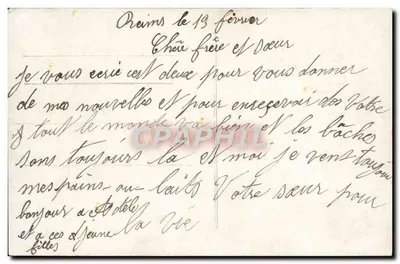 Reims le 13 février
Chère frère et sœur
Je vous ecrie cest deux pour vous donner
de mes nouvelles et pour enreçevoir des votre
tout le monde va bien et les bôches
sons toujours là et moi je vent toujour
mes pains ou laits Votre sœur pour
bonjour a Adèle la vie
et a ces ajeune
filles
CPAPHIL